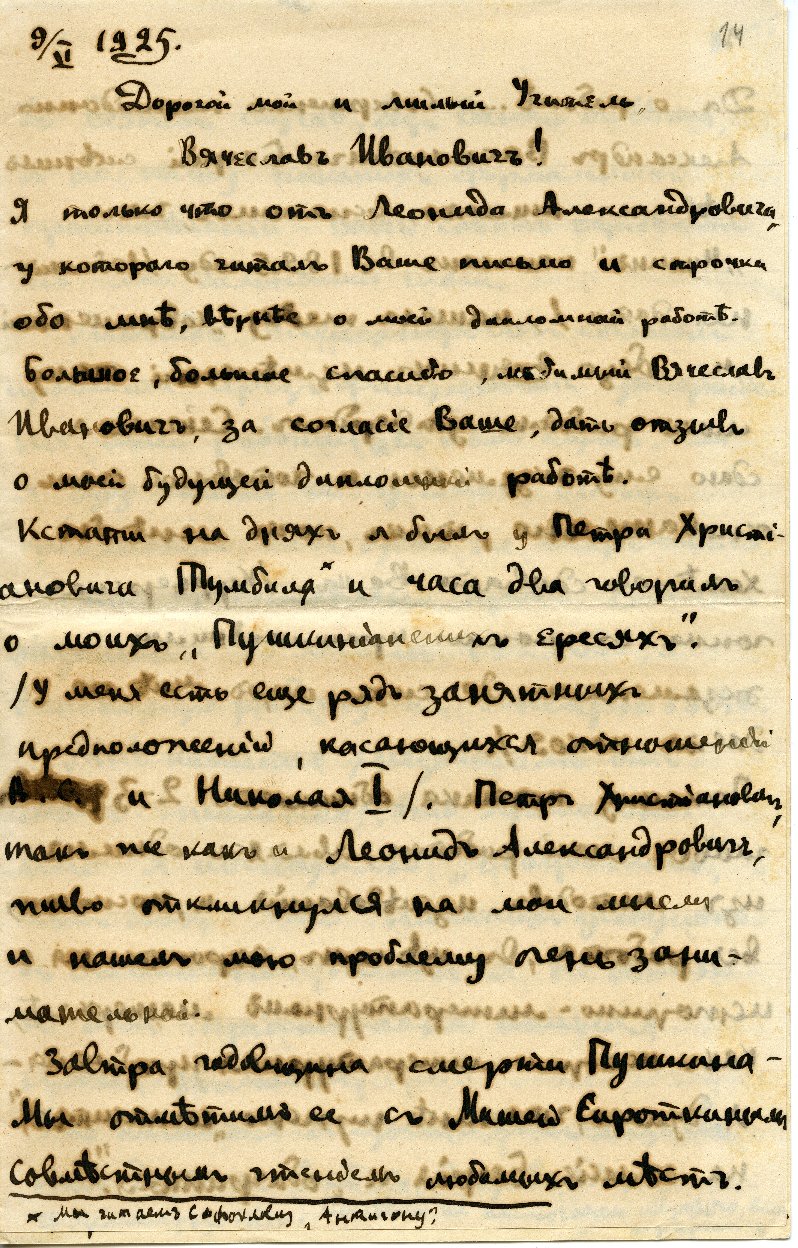 14
9/VI 1925.
Дорогой мой и милый Учитель,
Вячеславъ Ивановичъ!
Я только что отъ Леонида Александровича,
у котораго читалъ Ваше письмо и строчки
обо мнѣ, вѣрнѣе о моей дипломной работѣ.
Большое, большое спасибо, любимый Вячеславъ
Ивановичъ, за согласіе Ваше, дать отзывъ
о моей будущей дипломной работѣ.
Кстати на дняхъ, я былъ у Петра Христі-
ановича Тумбиля* и часа два говорилъ
о моихъ „Пушкиніанскихъ ересяхъ".
/У меня есть еще рядъ занятныхъ
предположеній, касающихся отношеній
А. С. и Николая I/. Петръ Христіановичъ,
такъ же какъ и Леонидъ Александровичъ,
живо откликнулся на мои мысли
и нашелъ мою проблему очень зани-
мательной.
Завтра годовщина смерти Пушкина –
Мы отмѣтимъ ее съ Мишей Сироткинымъ
совмѣстнымъ чтеніемъ любимыхъ мѣстъ.
* Мы читаемъ Софоклову „Антигону".